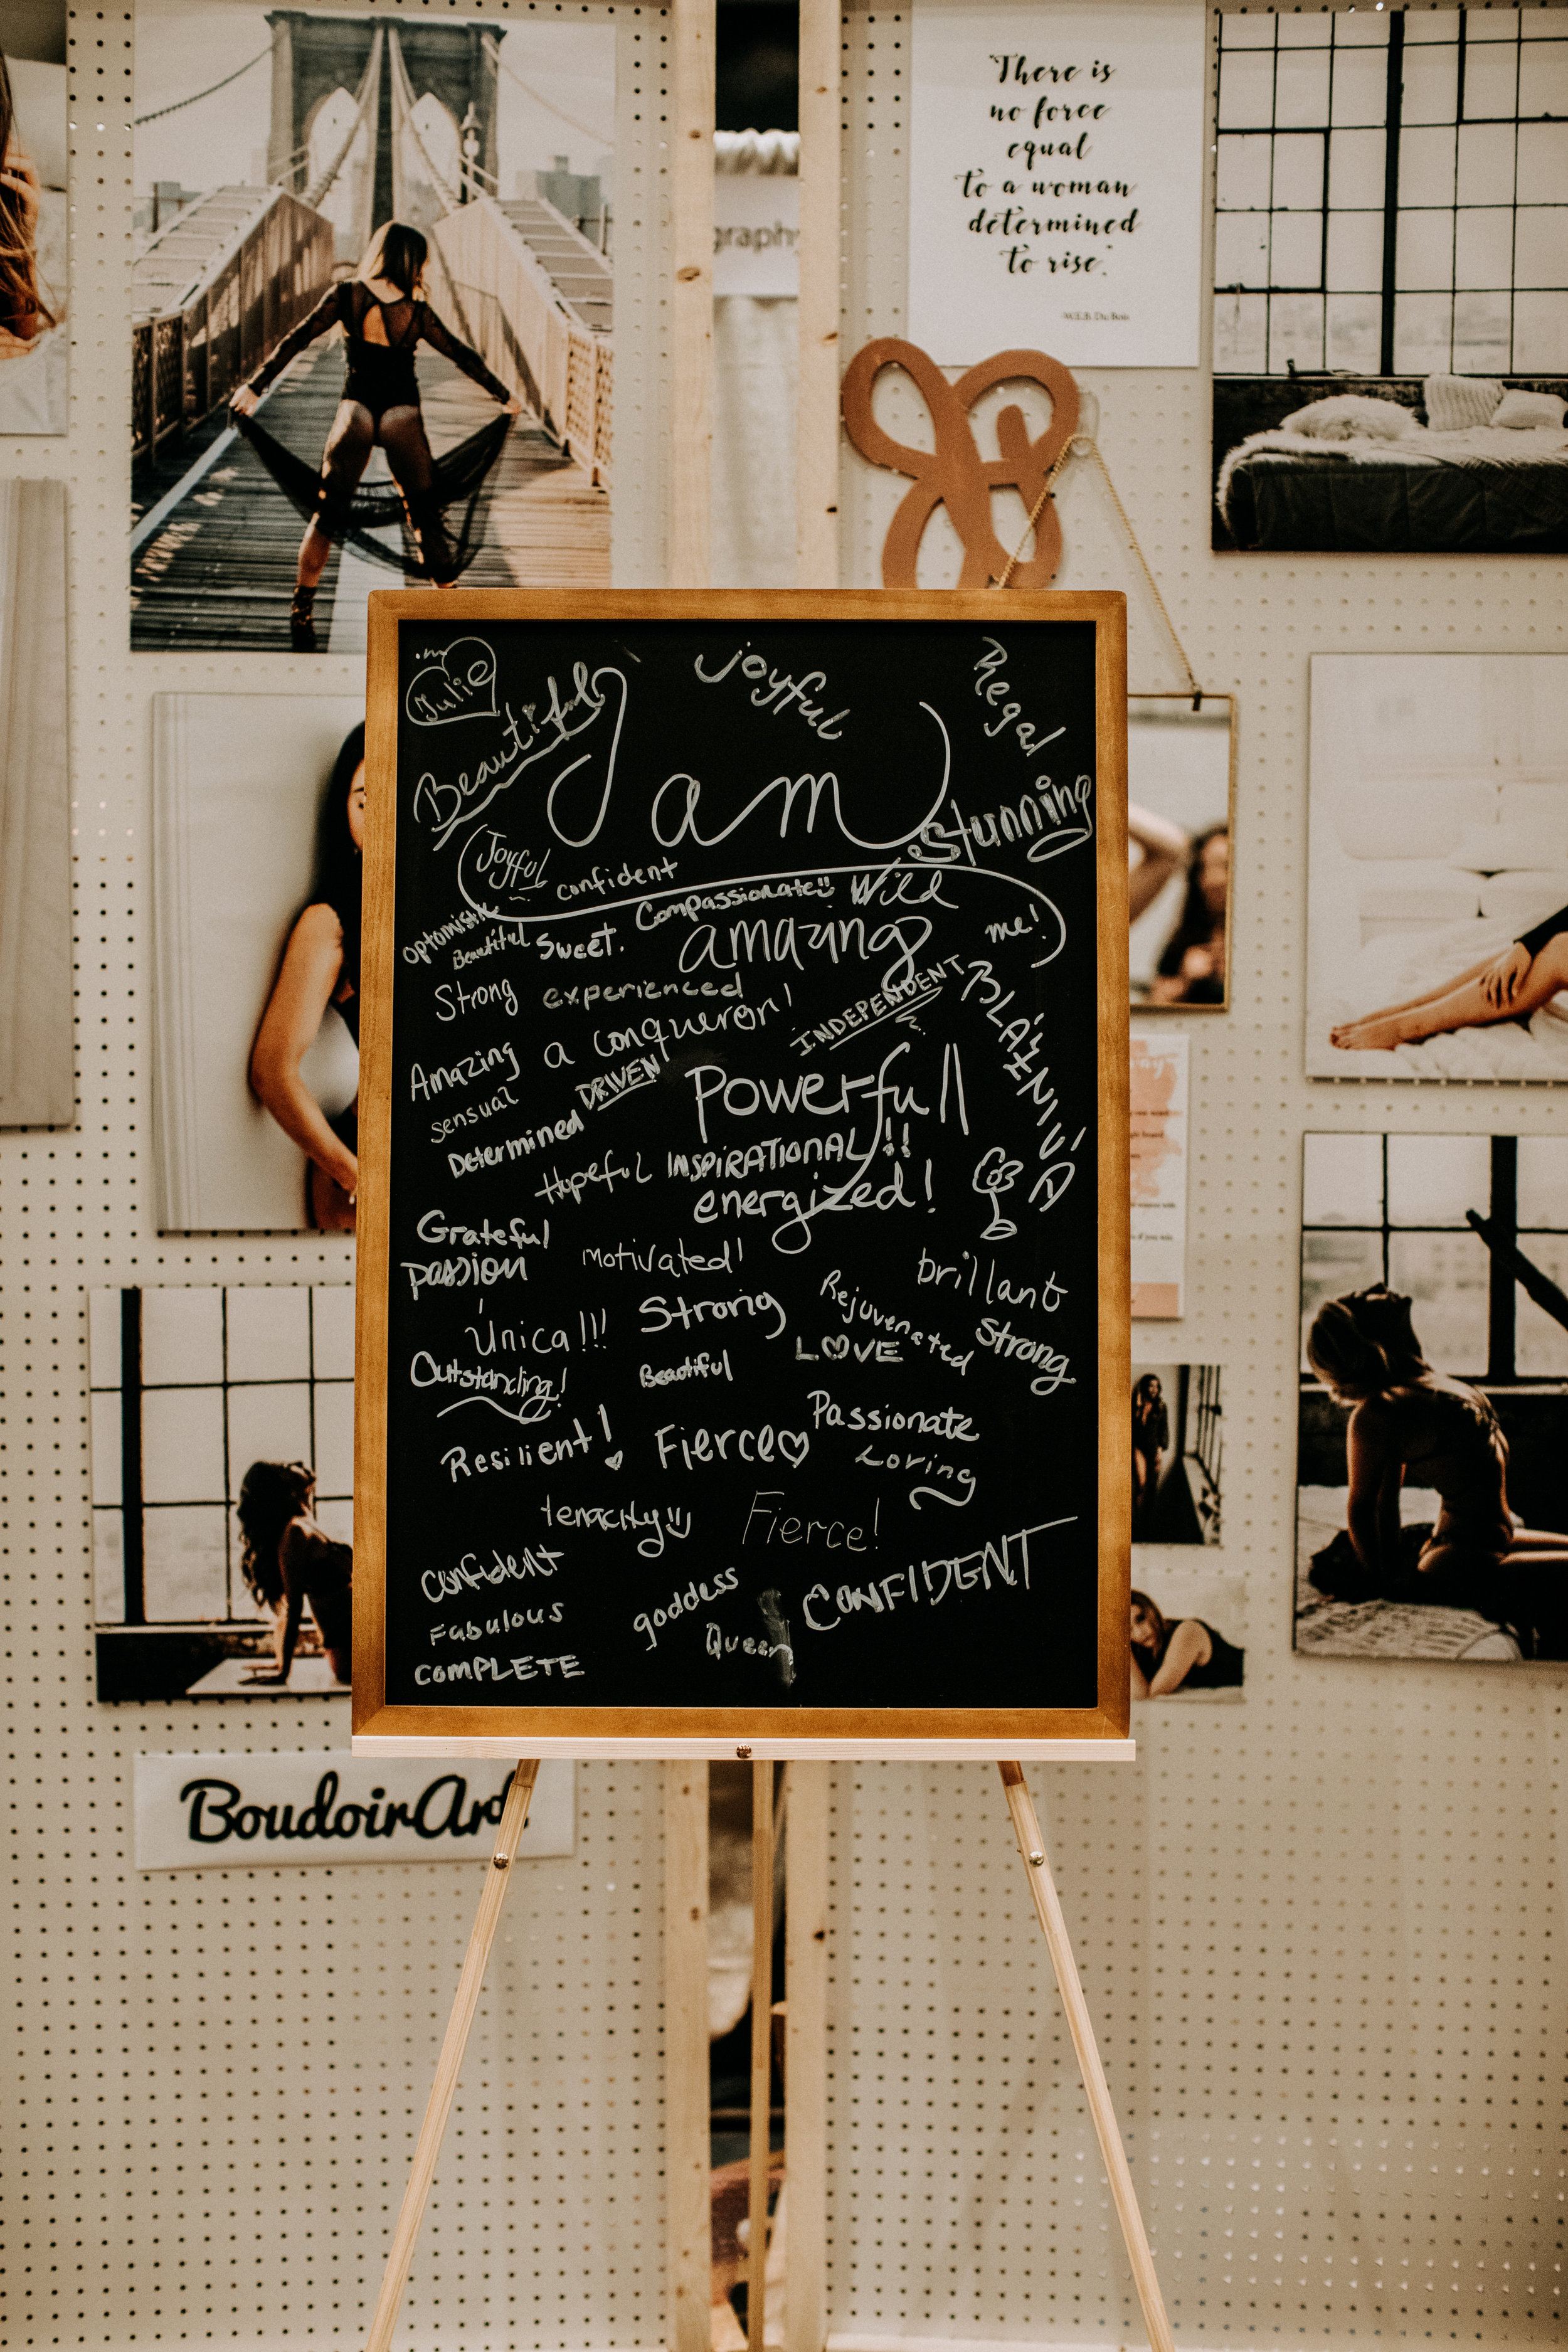 "There is
no force
equal
to a woman
determined
to rise."
W.E.B. Du Bois
graphy
I'm
Julie
Beautiful
Joyful
Regal
I am
Stunning
Joyful
confident
Compassionate
Wild
optomistic
Beautiful
Sweet.
amazing
me!
Strong
experienced
INDEPENDENT
Amazing
a conqueror!
sensual
DRIVEN
Powerfull
Determined
Hopeful
INSPIRATIONAL!!
energized!
Grateful
passion
motivated!
brillant
Única!!!
Strong
Rejuvenated
Strong
LOVE
Outstanding!
Beautiful
Resilient!
Fierce
Passionate
Loving
tenacity
Fierce!
Confident
goddess
CONFIDENT
Fabulous
Queen
COMPLETE
BoudoirArt